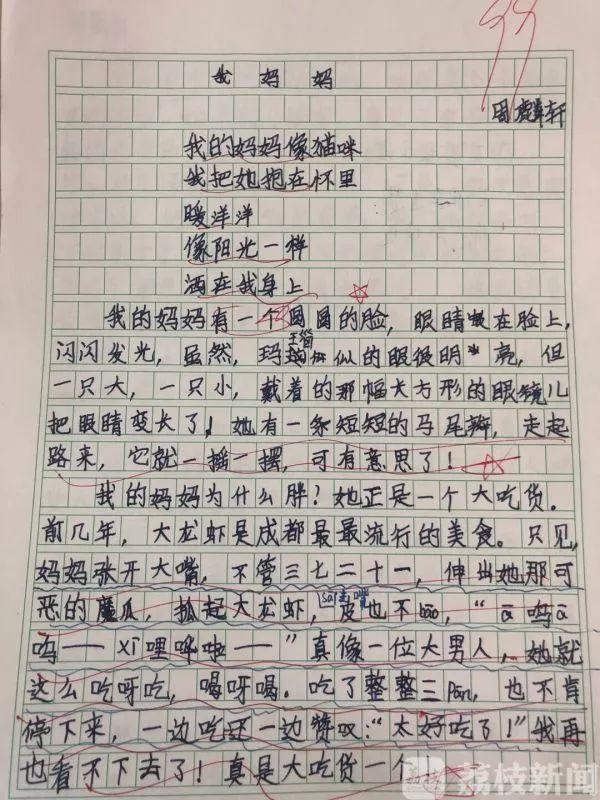 99
我妈妈
周麟轩
我的妈妈像猫咪
我把她抱在怀里
暖洋洋
像阳光一样
洒在我身上
我的妈妈有一个圆圆的脸，眼睛嵌在脸上，
闪闪发光，虽然，玛瑙似的眼很明亮，但
一只大，一只小，戴着的那幅大方形的眼镜儿
把眼睛变长了！她有一条短短的马尾辫，走起
路来，它就一摇一摆，可有意思了！
我的妈妈为什么胖？她正是一个大吃货。
前几年，大龙虾是成都最最流行的美食。只见，
妈妈张开大嘴，不管三七二十一，伸出她那可
恶的魔爪，抓起大龙虾，皮也不bāo，“ā呜ā
呜——xī哩哗啦——”真像一位大男人，她就
这么吃呀吃，喝呀喝。吃了整整三pán，也不肯
停下来，一边吃还一边赞叹：“太好吃了！”我再
也看不下去了！真是大吃货一个
荔枝新闻